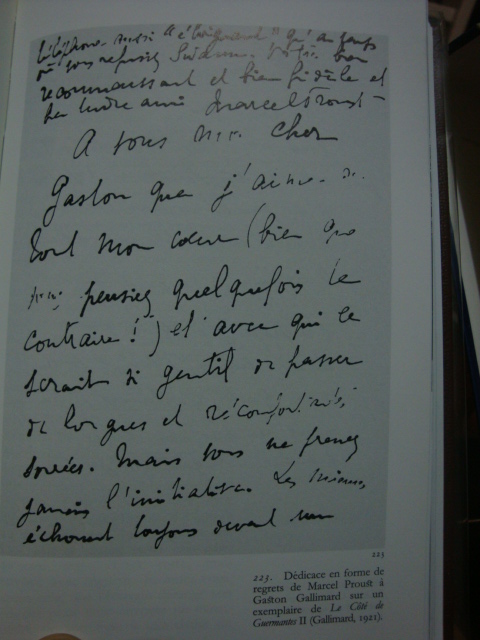 téléphone aussi "éloignant" qu'au temps
où vous refusiez Swann. Votre bien
reconnaissant et bien fidèle et
bien tendre ami Marcel Proust
A vous mon cher
Gaston que j'aime de
tout mon cœur (bien que
vous pensiez quelquefois le
contraire !) et avec qui ce
serait si gentil de passer
de longues et réconfortantes
soirées. Mais vous ne prenez
jamais l'initiative. Les miennes
échouent toujours devant un
223
223. Dédicace en forme de
regrets de Marcel Proust à
Gaston Gallimard sur un
exemplaire de Le Côté de
Guermantes II (Gallimard, 1921).